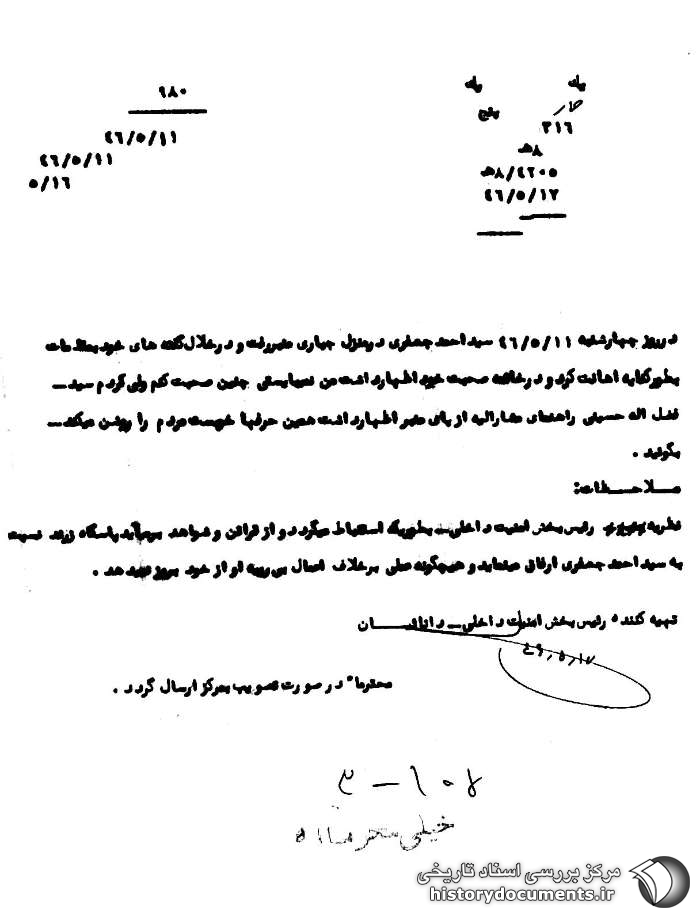 یک یک
۹۸۰
پنج
۳۱۶
۴۶/۵/۱۱
۸هـ
۴۶/۵/۱۱
۸/۴۲۰۵هـ
۵/۱۶
۴۶/۵/۱۷
در روز چهارشنبه ۴۶/۵/۱۱ سید احمد جعفری در منزل جباری منبر رفت و در خلال گفته های خود بمقامات
بطور کنایه اهانت کرد و در خاتمه صحبت خود اظهار داشت من نمیبایستی چنین صحبت کنم ولی کردم سید ـ
فضل اله حسینی راهنمای مشارالیه از پای منبر اظهار داشت همین حرفها خوبست مردم را روشن میکند ـ
بگوئید .
ملاحظات:
نظریه رئیس بخش امنیت داخلی ـ بطوریکه استنباط میگردد و از قرائن و شواهد برمیآید پاسگاه زرند نسبت
به سید احمد جعفری ارفاق مینماید و هیچگونه عملی برخلاف اعمال بی رویه او از خود بروز نمیدهد .
تهیه کننده رئیس بخش امنیت داخلی ـ دانائیان
۴۶/۵/۱۷
محترما" در صورت تصویب بمرکز ارسال گردد .
۳ – ۱۰۷
خیلی محرمانه
مرکز بررسی اسناد تاریخی
historydocuments.ir